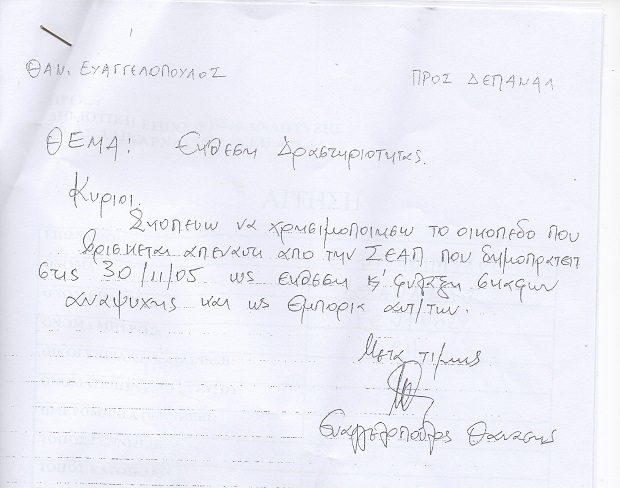 ΘΑΝ. ΕΥΑΓΓΕΛΟΠΟΥΛΟΣ
ΠΡΟΣ ΔΕΠΑΝΑΛ
ΘΕΜΑ: Εκθεση Δραστηριοτητας.
Κυριοι.
Σκοπευω να χρησιμοποιησω το οικοπεδο που
βρισκεται απεναντι απο την ΣΕΑΠ που δημοπρατειτ
στις 30/11/05 ως εκθεση κ' φυλαξη σκαφων
αναψυχης και ως εμπορια αντ/των.
Μετα τιμης
Ευαγγελοπουλος Θανασης